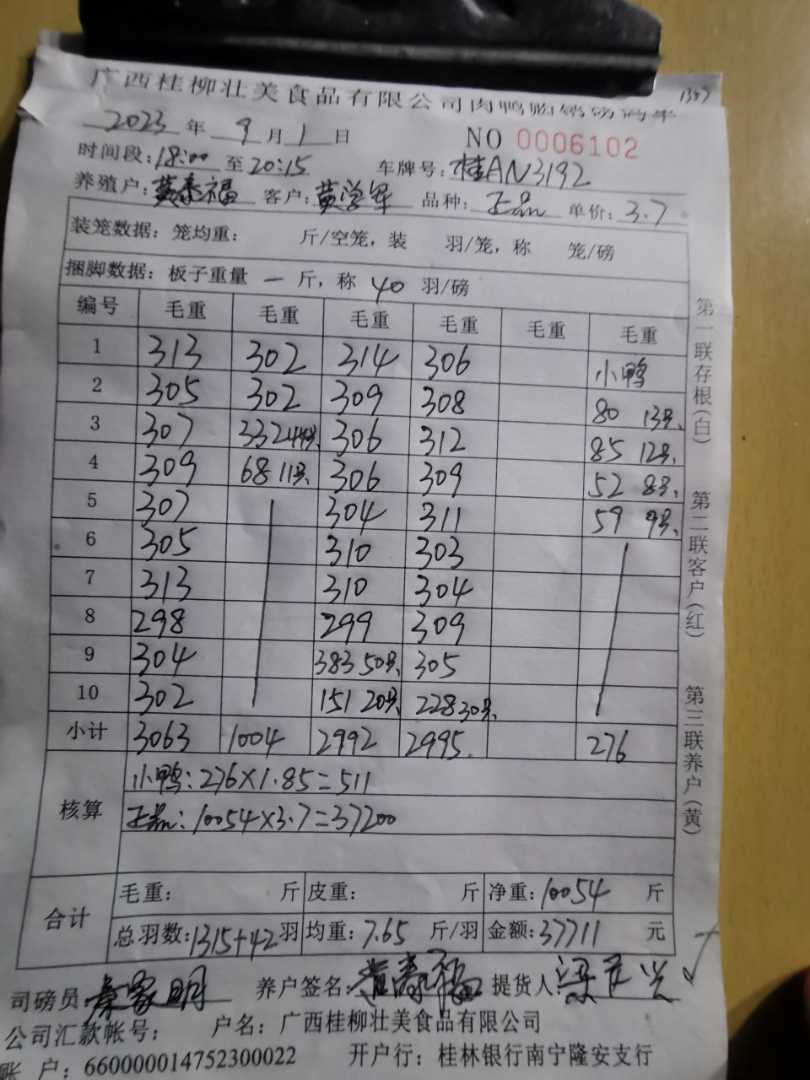 广西桂柳壮美食品有限公司肉鸭
1357
2023年9月1日 NO 0006102
时间段:18:00至20:15 车牌号:桂AN3192
养殖户:黄泰福 客户:黄学军 品种:正品 单价:3.7
装笼数据:笼均重: 斤/空笼,装 羽/笼,称 笼/磅
捆脚数据:板子重量 一 斤,称 40 羽/磅
编号 毛重 毛重 毛重 毛重 毛重 毛重
1 313 302 314 306 小鸭
2 305 302 309 308 80 13只
3 307 332 44只 306 312 85 12只
4 309 68 11只 306 309 52 8只
5 307 304 311 59 9只
6 305 310 303
7 313 310 304
8 298 299 309
9 304 383 50只 305
10 302 151 20只 228 30只
小计 3063 1004 2992 2995 276
核算 小鸭:276×1.85=511
正品:10054×3.7=37200
合计 毛重: 斤 皮重: 斤 净重:10054 斤
总羽数:1315+42羽 均重:7.65 斤/羽 金额:37711 元
司磅员 秦家明 养户签名:黄泰福 提货人:
公司汇款帐号: 户名:广西桂柳壮美食品有限公司
账 户:660000014752300022 开户行:桂林银行南宁隆安支行
第一联存根(白) 第二联客户(红) 第三联养户(黄)